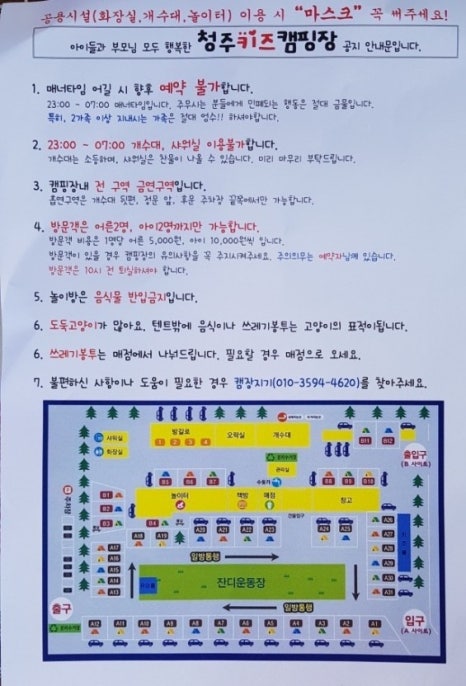 공용시설(화장실,개수대,놀이터) 이용 시 "마스크" 꼭 써주세요!
아이들과 부모님 모두 행복한 청주키즈캠핑장 공지 안내문입니다.
1. 매너타임 어길 시 향후 예약 불가합니다.
23:00 ~ 07:00 매너타임입니다. 주무시는 분들에게 민폐되는 행동은 절대 금물입니다.
특히, 2가족 이상 지내시는 가족은 절대 엄수!! 하셔야합니다.
2. 23:00 ~ 07:00 개수대, 샤워실 이용불가합니다.
개수대는 소등하며, 샤워실은 찬물이 나올 수 있습니다. 미리 마무리 부탁드립니다.
3. 캠핑장내 전 구역 금연구역입니다.
흡연구역은 개수대 뒷편, 정문 앞, 후문 주차장 끝쪽에서만 가능합니다.
4. 방문객은 어른2명, 아이2명까지만 가능합니다.
방문객 비용은 1명당 어른 5,000원, 아이 10,000원씩 입니다.
방문객이 있을 경우 캠핑장의 유의사항을 꼭 주지시켜주세요. 주의의무는 예약자님께 있습니다.
방문객은 10시 전 퇴실하셔야 합니다.
5. 놀이방은 음식물 반입금지입니다.
6. 도둑고양이가 많아요. 텐트밖에 음식이나 쓰레기봉투는 고양이의 표적이됩니다.
6. 쓰레기봉투는 매점에서 나눠드립니다. 필요할 경우 매점으로 오세요.
7. 불편하신 사항이나 도움이 필요한 경우 캠장지기(010-3594-4620)를 찾아주세요.
방갈로 오락실 개수대
1 2 3 4
샤워실
화장실
B11 B12
출입구
(B 사이트)
관리실
수돗가
B5 B6 B7
B8 B9 B10
B1
B2
B3
주차장
놀이터 책방 매점 창고
B4
A18 A19
A20 A21 A22 A23 A24 A25
A26
A27
A28
A29
A30
A31
A17
A16
A15
A14
A13
일방통행
잔디운동장
일방통행
출구
입구
(A 사이트)
A12 A11 A10 A9 A8 A7 A6 A5 A4 A3 A2 A1